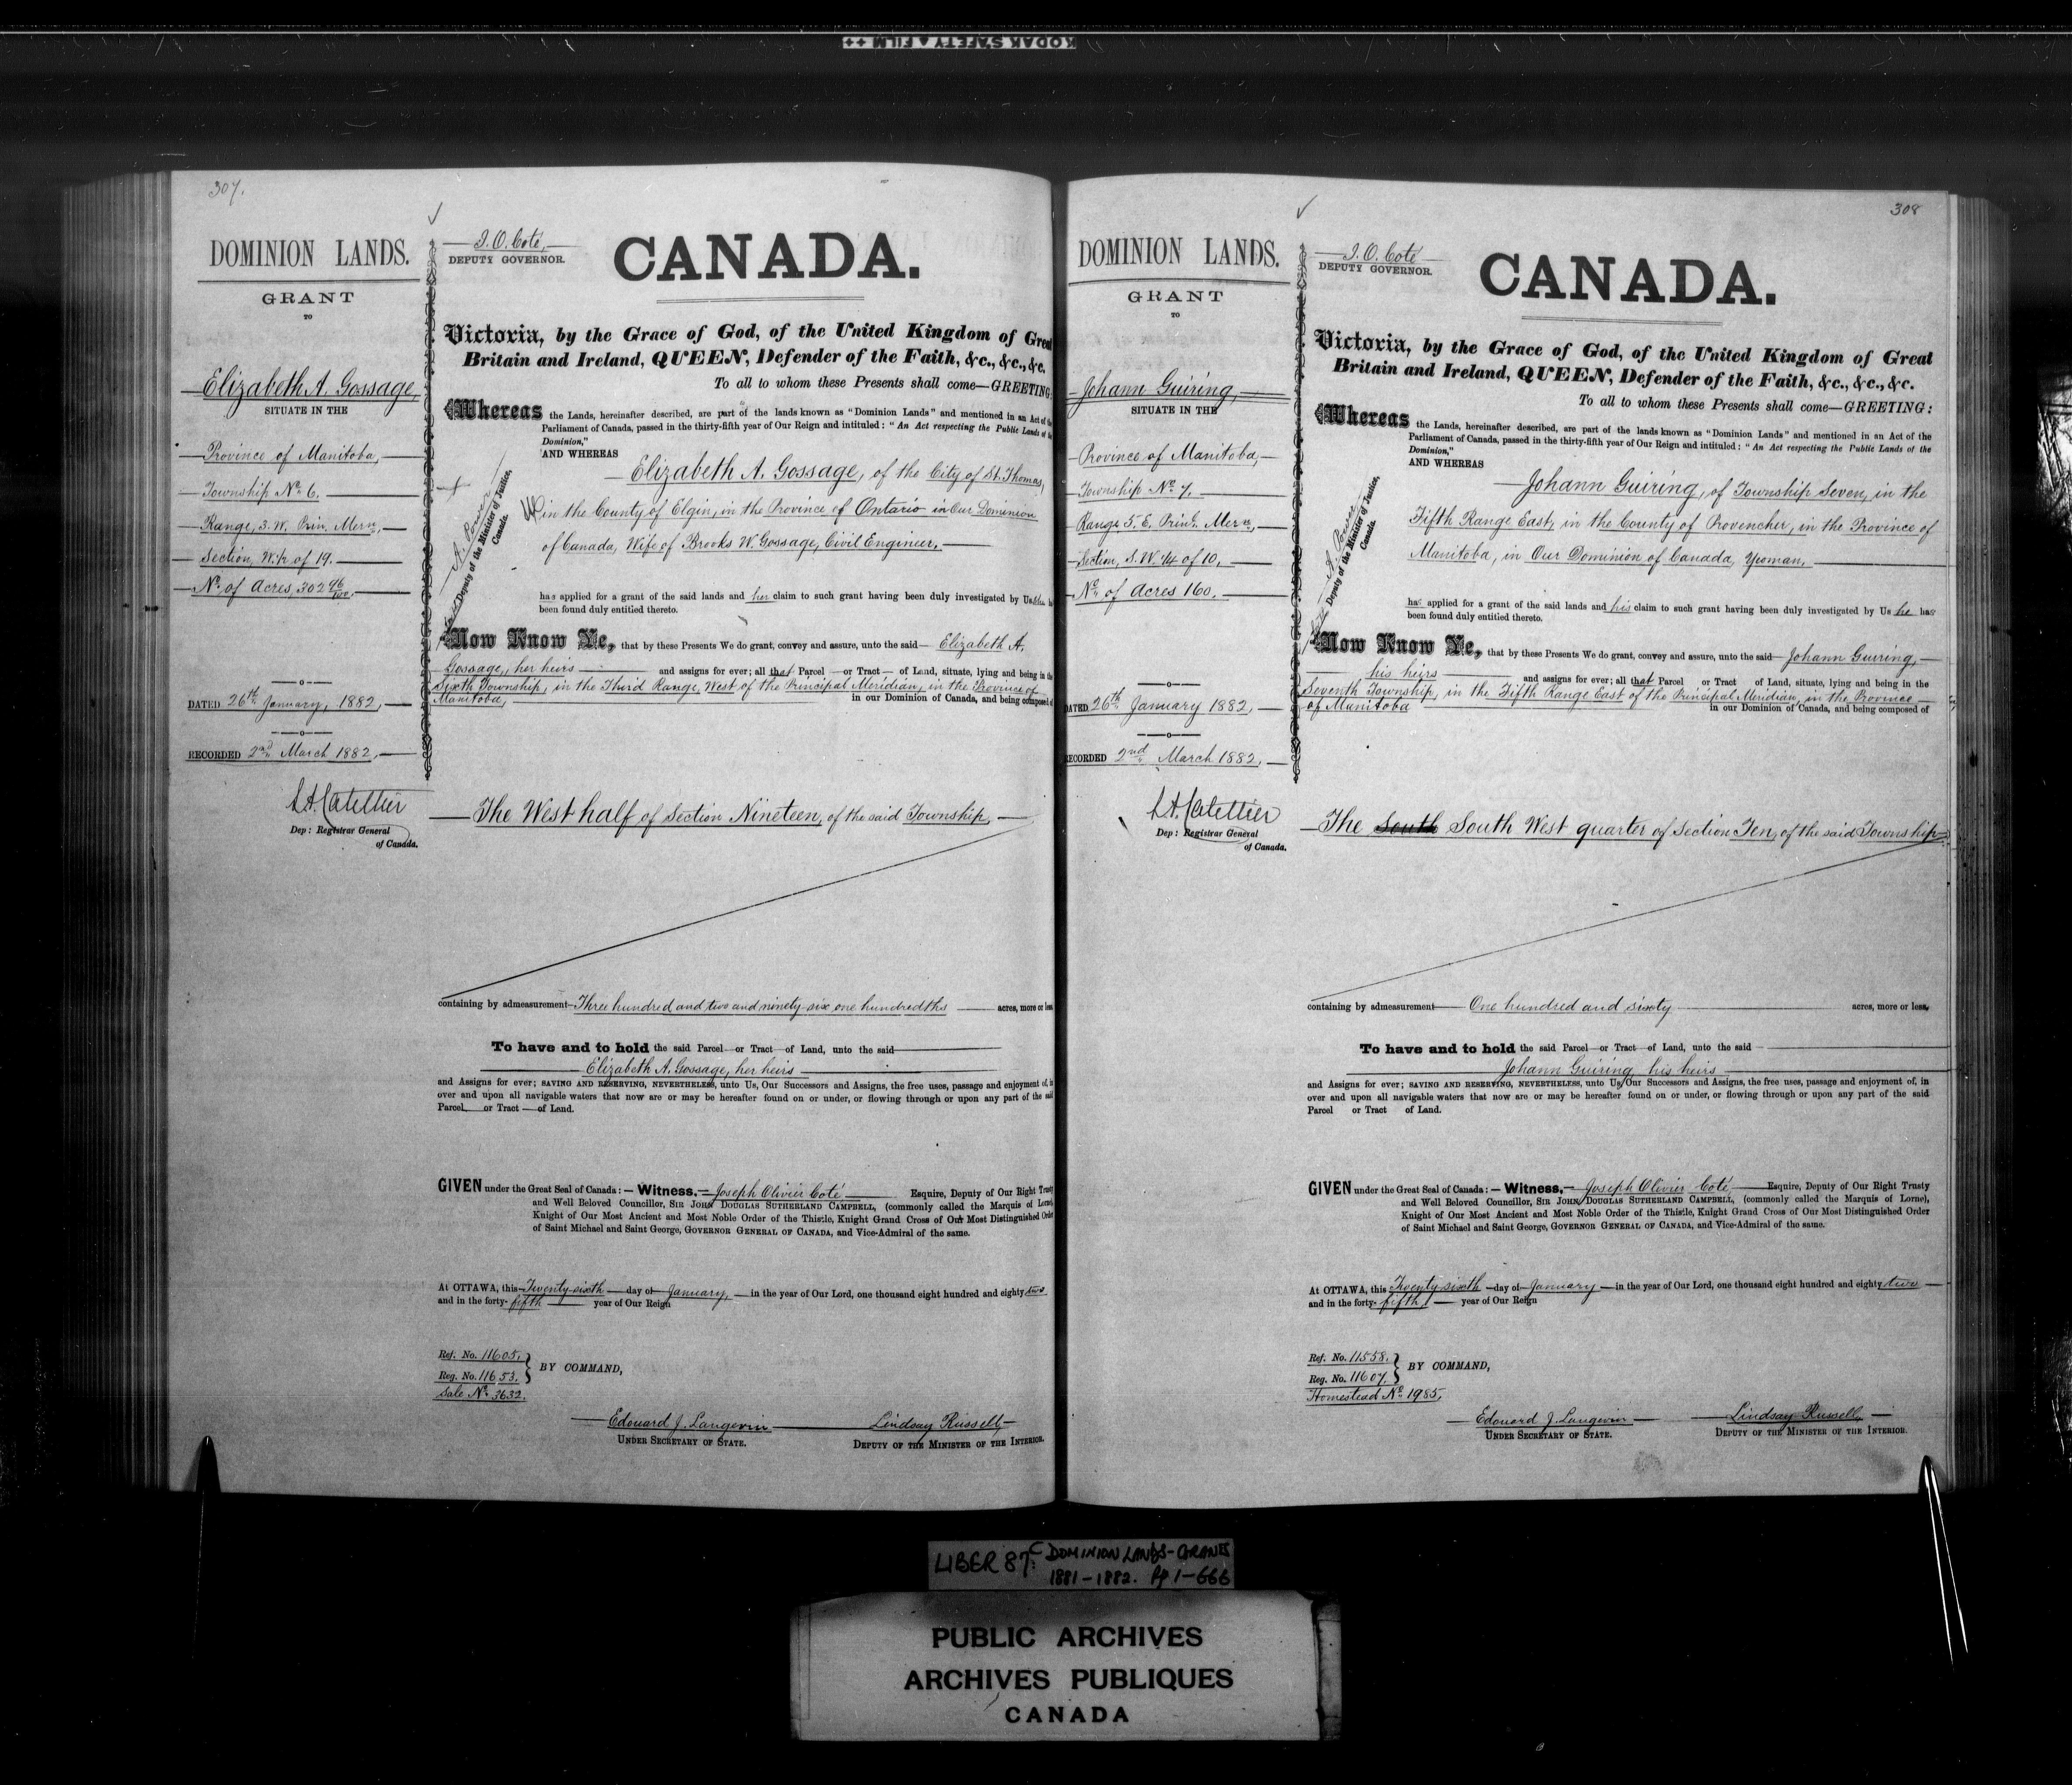 KODAK SAFETY FILM ++
307.
DOMINION LANDS.
GRANT
TO
Elizabeth A. Gossage,
SITUATE IN THE
Province of Manitoba,
Township No. 6.
Range, 3. W. Prin. Mern,
Section, W. ½ of 19.
No. of Acres, 302 96/100.
DATED 26th January, 1882,
RECORDED 2nd March 1882,
L. A. Catellier
Dep: Registrar General
of Canada.
J. O. Coté,
DEPUTY GOVERNOR.
CANADA.
Victoria, by the Grace of God, of the United Kingdom of Great
Britain and Ireland, QUEEN, Defender of the Faith, &c., &c., &c.
To all to whom these Presents shall come—GREETING:
Whereas the Lands, hereinafter described, are part of the lands known as "Dominion Lands" and mentioned in an Act of the
Parliament of Canada, passed in the thirty-fifth year of Our Reign and intituled: "An Act respecting the Public Lands of the
Dominion,"
AND WHEREAS
Elizabeth A. Gossage, of the City of St. Thomas,
in the County of Elgin, in the Province of Ontario in Our Dominion
of Canada, Wife of Brooks W. Gossage, Civil Engineer,
A. Power
Deputy of the Minister of Justice,
Canada.
has applied for a grant of the said lands and her claim to such grant having been duly investigated by Us
been found duly entitled thereto.
Now Know Ye, that by these Presents We do grant, convey and assure, unto the said Elizabeth A.
Gossage, her heirs and assigns for ever; all that Parcel or Tract of Land, situate, lying and being in the
Sixth Township, in the Third Range, West of the Principal Meridian, in the Province of
Manitoba, in our Dominion of Canada, and being composed of
The West half of Section Nineteen, of the said Township,
containing by admeasurement Three hundred and two and ninety-six one hundredths acres, more or less
To have and to hold the said Parcel or Tract of Land, unto the said
Elizabeth A. Gossage, her heirs
and Assigns for ever; SAVING AND RESERVING, NEVERTHELESS, unto Us, Our Successors and Assigns, the free uses, passage and enjoyment of, in
over and upon all navigable waters that now are or may be hereafter found on or under, or flowing through or upon any part of the said
Parcel or Tract of Land.
GIVEN under the Great Seal of Canada:—Witness,—Joseph Olivier Coté Esquire, Deputy of Our Right Trusty
and Well Beloved Councillor, SIR JOHN DOUGLAS SUTHERLAND CAMPBELL, (commonly called the Marquis of Lorne),
Knight of Our Most Ancient and Most Noble Order of the Thistle, Knight Grand Cross of Our Most Distinguished Order
of Saint Michael and Saint George, GOVERNOR GENERAL OF CANADA, and Vice-Admiral of the same.
At OTTAWA, this Twenty-sixth day of January, in the year of Our Lord, one thousand eight hundred and eighty two
and in the forty-fifth year of Our Reign
Ref. No. 11605.
Reg. No. 11653.
Sale No. 3632.
BY COMMAND,
Edouard J. Langevin
UNDER SECRETARY OF STATE.
Lindsay Russell,
DEPUTY OF THE MINISTER OF THE INTERIOR.
308
DOMINION LANDS.
GRANT
TO
Johann Guiring,
SITUATE IN THE
Province of Manitoba,
Township No. 7.
Range 5. E. Prinl. Mern,
Section, S. W. ¼ of 10,
No. of Acres 160.
DATED 26th January 1882,
RECORDED 2nd March 1882,
L. A. Catellier
Dep: Registrar General
of Canada.
J. O. Coté
DEPUTY GOVERNOR.
CANADA.
Victoria, by the Grace of God, of the United Kingdom of Great
Britain and Ireland, QUEEN, Defender of the Faith, &c., &c., &c.
To all to whom these Presents shall come—GREETING:
Whereas the Lands, hereinafter described, are part of the lands known as "Dominion Lands" and mentioned in an Act of the
Parliament of Canada, passed in the thirty-fifth year of Our Reign and intituled: "An Act respecting the Public Lands of the
Dominion,"
AND WHEREAS
Johann Guiring, of Township Seven, in the
Fifth Range East, in the County of Provencher, in the Province of
Manitoba, in Our Dominion of Canada, Yeoman,
A. Power
Deputy of the Minister of Justice,
Canada.
has applied for a grant of the said lands and his claim to such grant having been duly investigated by Us he has
been found duly entitled thereto.
Now Know Ye, that by these Presents We do grant, convey and assure, unto the said Johann Guiring,
his heirs and assigns for ever; all that Parcel or Tract of Land, situate, lying and being in the
Seventh Township, in the Fifth Range East of the Principal Meridian, in the Province
of Manitoba in our Dominion of Canada, and being composed of
The South South West quarter of Section Ten, of the said Township
containing by admeasurement One hundred and sixty acres, more or less,
To have and to hold the said Parcel or Tract of Land, unto the said
Johann Guiring his heirs
and Assigns for ever; SAVING AND RESERVING, NEVERTHELESS, unto Us, Our Successors and Assigns, the free uses, passage and enjoyment of, in
over and upon all navigable waters that now are or may be hereafter found on or under, or flowing through or upon any part of the said
Parcel or Tract of Land.
GIVEN under the Great Seal of Canada:—Witness,—Joseph Olivier Coté Esquire, Deputy of Our Right Trusty
and Well Beloved Councillor, SIR JOHN DOUGLAS SUTHERLAND CAMPBELL, (commonly called the Marquis of Lorne),
Knight of Our Most Ancient and Most Noble Order of the Thistle, Knight Grand Cross of Our Most Distinguished Order
of Saint Michael and Saint George, GOVERNOR GENERAL OF CANADA, and Vice-Admiral of the same.
At OTTAWA, this Twenty-sixth day of January in the year of Our Lord, one thousand eight hundred and eighty two
and in the forty-fifth year of Our Reign
Ref. No. 11558.
Reg. No. 11607.
Homestead No. 1985.
BY COMMAND,
Edouard J. Langevin
UNDER SECRETARY OF STATE.
Lindsay Russell,
DEPUTY OF THE MINISTER OF THE INTERIOR.
LIBER 87C: DOMINION LANDS-GRANTS
1881-1882. Pp 1-666
PUBLIC ARCHIVES
ARCHIVES PUBLIQUES
CANADA